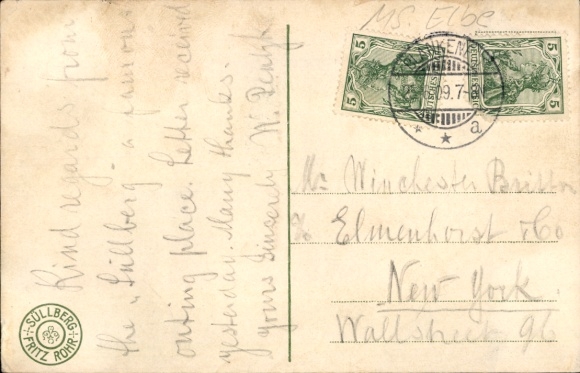 MS. Elbe
5
5
5
5
BLANKENESE
09.7-8
* * a
Kind regards from
the "Süllberg" a famous
outing place. Letter received
yesterday. Many thanks.
yours sincerely W.
Mr Winchester Britton
c/o Elmenhorst & Co
New York
Wallstreet 96
SÜLLBERG
FRITZ ROHR